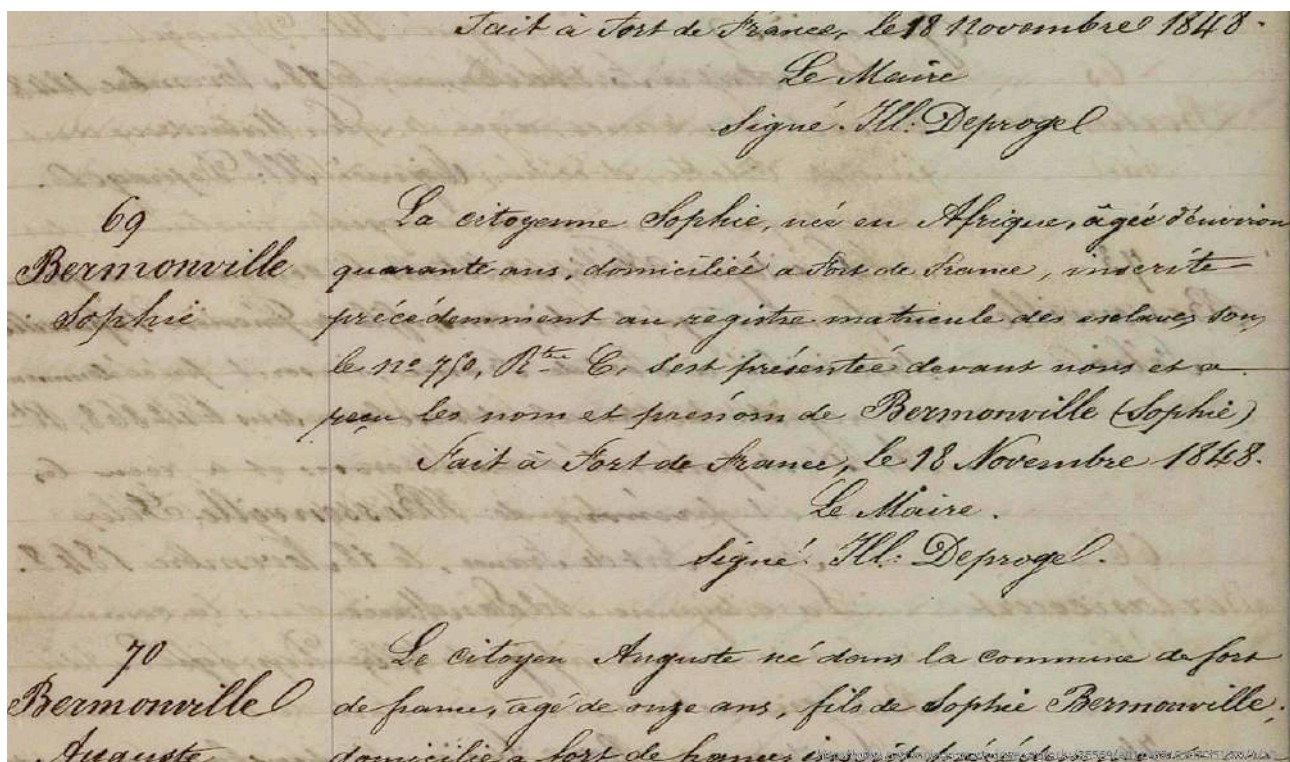 Fait à Fort de France, le 18 Novembre 1848.
Le Maire
Signé. Ill: Deprogel
69
Bermonville
Sophie
La citoyenne Sophie, née en Afrique, âgée d'environ
quarante ans, domiciliée a Fort de France, inscrite
précédemment au registre matricule des esclaves sous
le no 750, Rtre C. s'est présentée devant nous et a
reçu les nom et prénom de Bermonville (Sophie)
Fait à Fort de France, le 18 Novembre 1848.
Le Maire.
Signé: Ill: Deprogel.
70
Bermonville
Auguste
Le citoyen Auguste né dans la commune de fort
de france, âgé de onze ans, fils de Sophie Bermonville,
domicilié a fort de france